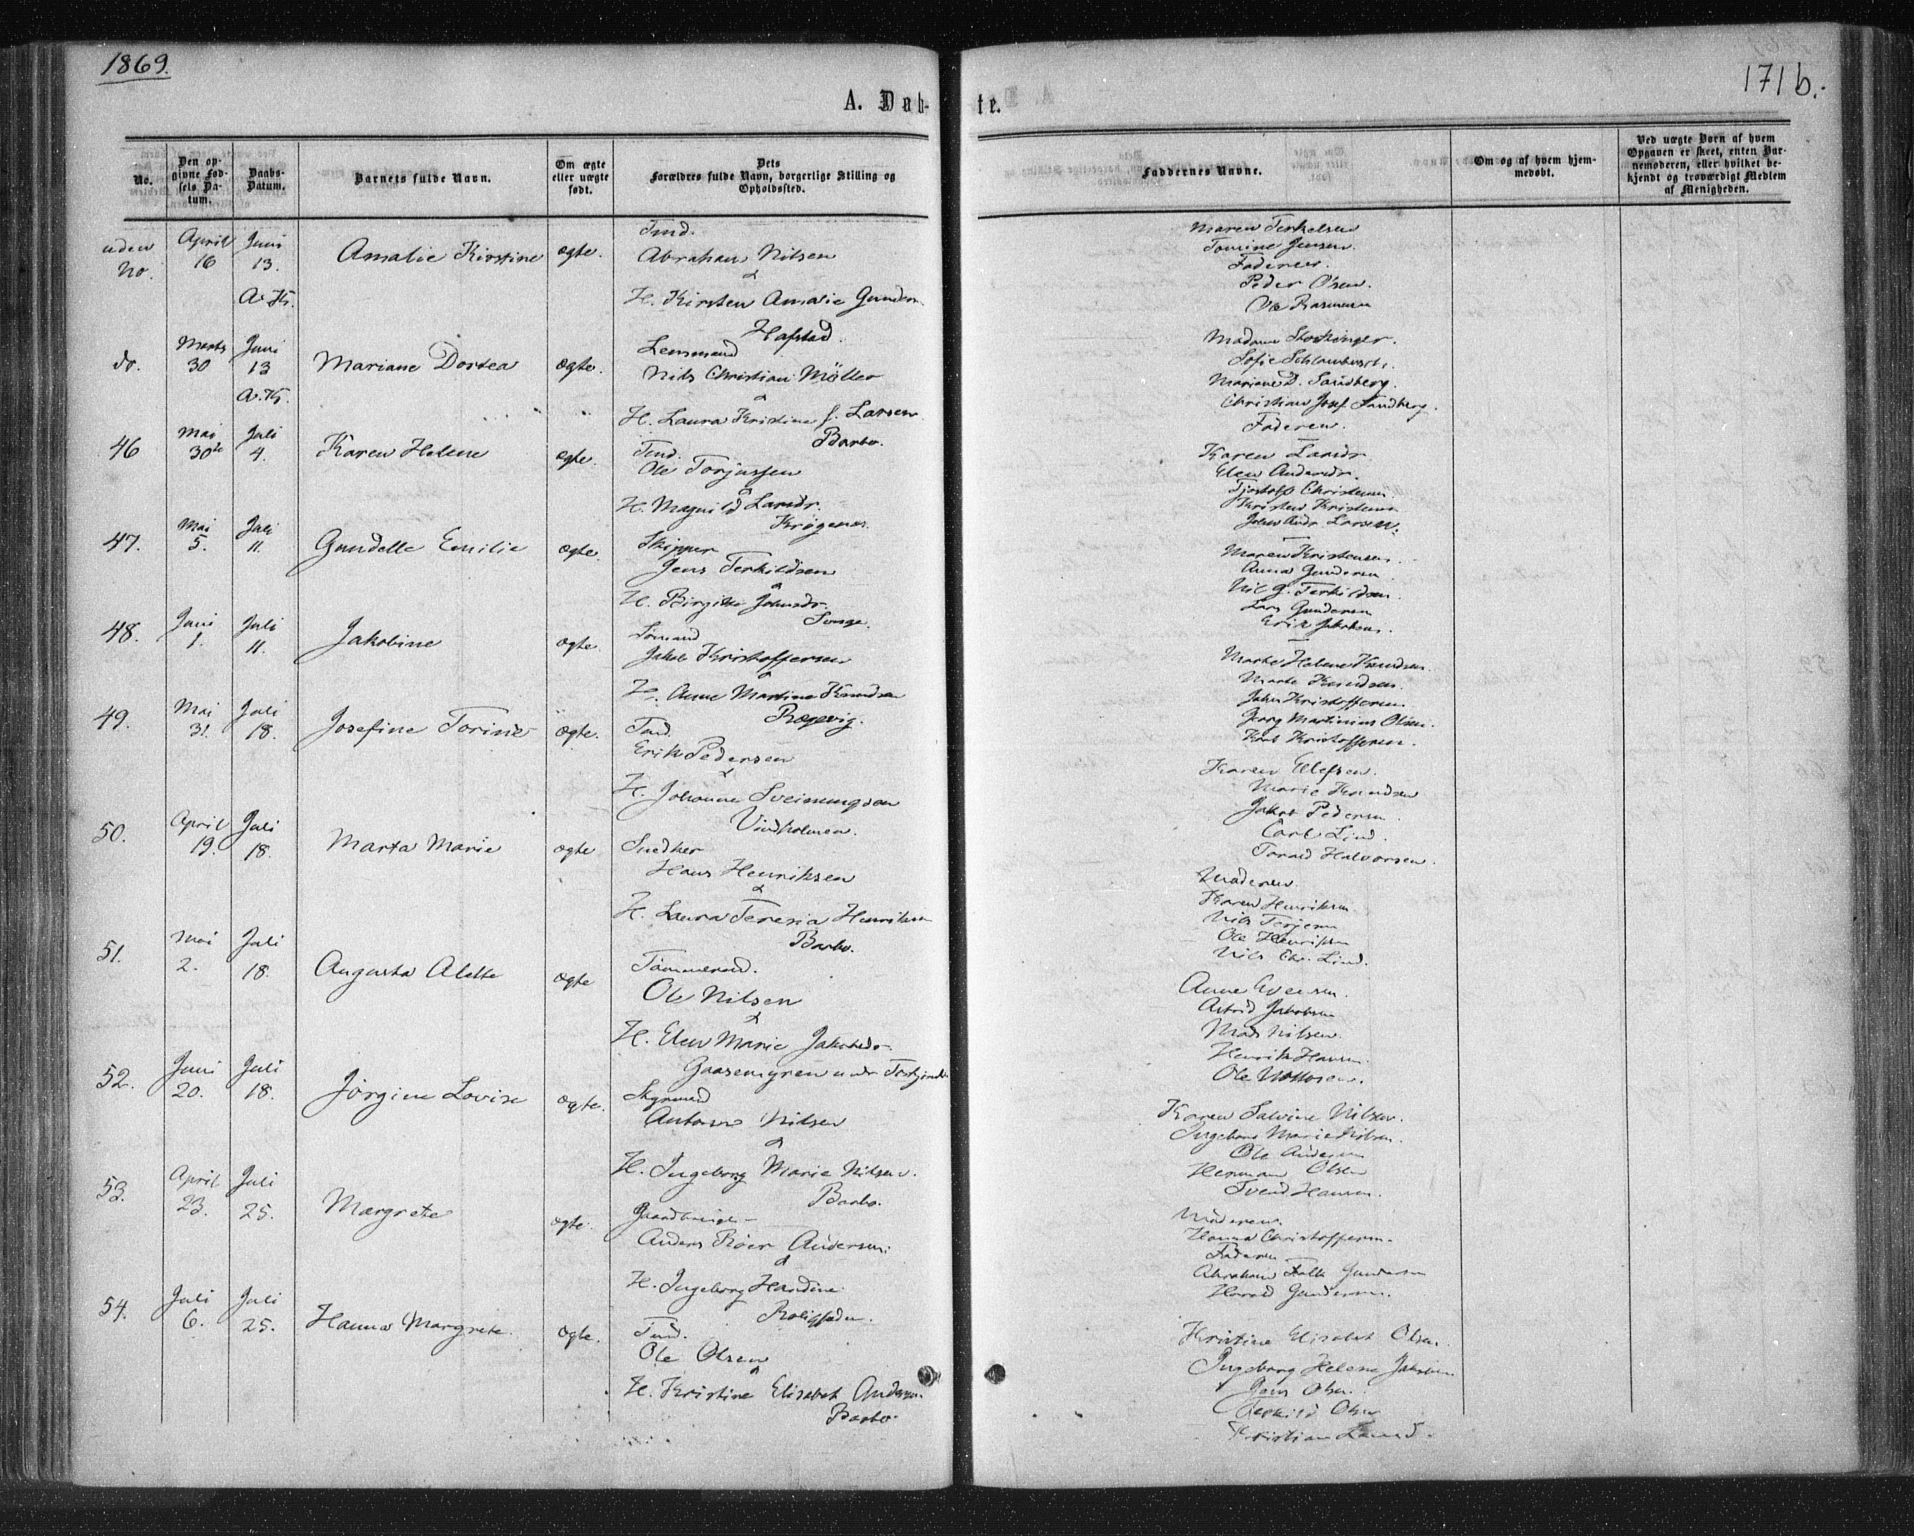 1869.
171 b.
A. Døb-te.
No.
Den opgivne Fødsels Datum.
Daabs-Datum.
Barnets fulde Navn.
Om ægte eller uægte født.
Dets Forældres fulde Navn, borgerlige Stilling og Opholdssted.
Faddernes Navne.
Om og af hvem hjemmedøbt.
Ved uægte Børn af hvem Opgaven er skeet, enten Barnemoderen, eller hvilket bekjendt og troværdigt Medlem af Menigheden.
uden No.
April 16
Juni 13.
A. K.
Amalie Kirstine
ægte.
Tmd.
Abraham Nilsen
&
H. Kirsten Amalie Gunders.
Hafstad.
Maren Terkelsen
Tomine Jensen.
Faderen.
Peder Olsen.
Ole Rasmusen
do.
Marts 30
Juni 13
A. K.
Mariane Dortea
ægte.
Lensmand
Nils Christian Møller
&
H. Laura Kristine f. Larsen
Barbo.
Madame
Sofie
Mariane D. Sandberg.
Christian Josef Sandberg.
Faderen.
46
Mai 30te
Juli 4.
Karen Helene
ægte.
Tmd.
Ole Torjussen
&
H. Magnild Larsdr.
Krøgenes.
Karen Larsdr
Elen Andersdr.
Tjostolf Christensen
Kristen Kristensen
Larsen.
47.
Mai 5.
Juli 11.
Gundelle Emilie
ægte.
Skipper
Jens Terkildsen
&
H. Birgitte Johnsdr.
Songe.
Maren Kristensen.
Anna Gundersen
Nil G. Terkildsen.
Lars Gundersen
Erik Jakobsen.
48.
Juni 1.
Juli 11.
Jakobine
ægte.
Sømand
Jakob Kristoffersen
&
H. Anne Martine Knudsen
Ræpvig.
Marte Helene Knudsen.
Marte Knudsen.
John Kristoffersen
Georg Martinius Olsen.
Knut Kristoffersen.
49.
Mai 31.
Juli 18.
Josefine Torine
ægte.
Tmd.
Erik Pedersen
&
H. Johanne Sveinungsen
Vindholmen.
Karen Olefsen.
Marie Knudsen
Jakob Pedersen
Carl Lind.
Tarald Halvorsen.
50.
April 19.
Juli 18.
Marta Marie
ægte
Snedker
Hans Henriksen
&
H. Laura Teresia Henriksen
Barbo.
Moderen.
Karen Henriksen
Nils Terjesen
Ole Henriksen
Nils Chr. Lind.
51.
Mai 2.
Juli 18.
Augusta Alette
ægte
Tømmermd.
Ole Nilsen
&
H. Elen Marie Jakobsdr.
Gaasemyren
Anne Evensen.
Astrid Jakobsen
Mads Nilsen
Henrik Hansen.
Ole
52.
Juni 20.
Juli 18.
Jørgine Lovise
ægte.
Styrmand
Anton Nilsen
&
H. Ingeborg Marie Nilsen.
Barbo.
Karen Salvine Nilsen.
Ingeborg Marie Nilsen.
Ole Andersen
Herman Olsen
Svend Hansen.
53.
April 23.
Juli 25.
Margrete
ægte.
Gaardbruger
Anders Røer Andersen.
&
H. Ingeborg Handine
Moderen.
Hanna Christoffersen.
Faderen
Abraham Falk Gundersen
Harald Gundersen.
54.
Juli 6.
Juli 25.
Hanna Margrete.
ægte.
Tmd.
Ole Olsen
&
H. Kristine Elisabet Andersen.
Barbo.
Kristine Elisabet Olsen.
Ingeborg Helene Jakobsen
Jens Olsen.
Terkild Olsen
Kristian